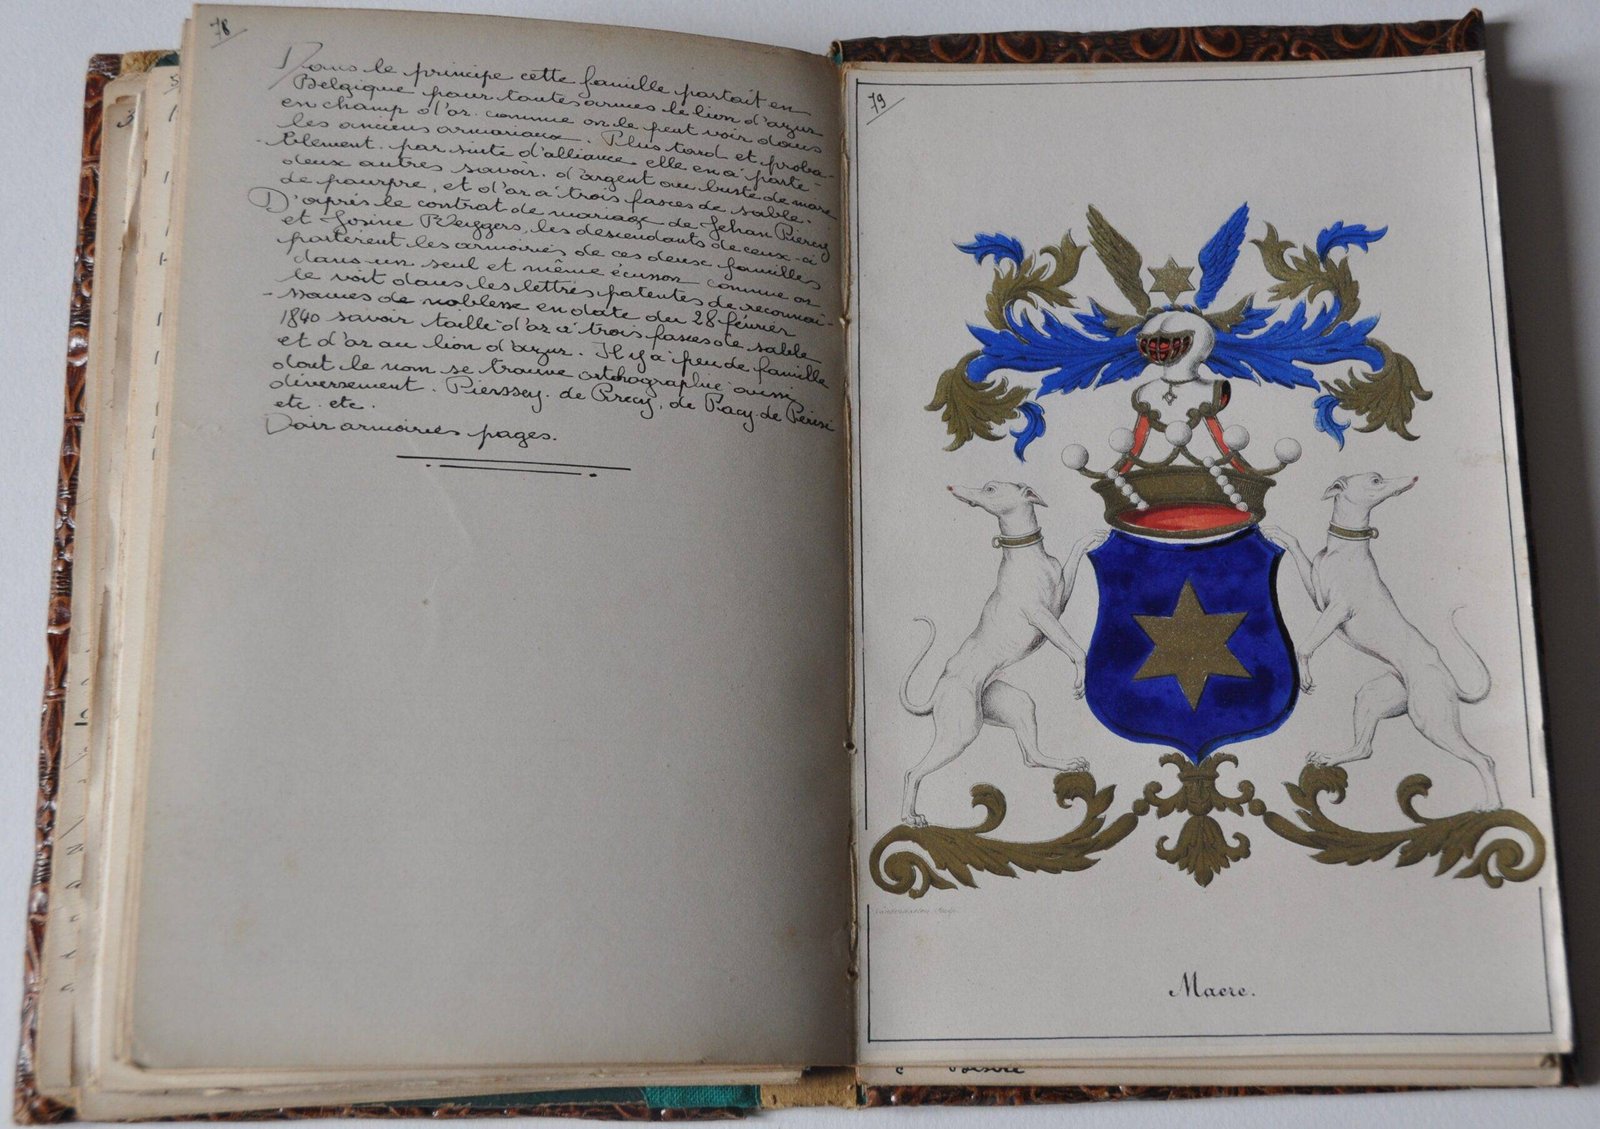 78
Dans le principe cette famille portait en
Belgique pour toutes armes le lion d'azur
en champ d'or. comme on le peut voir dans
les anciens armoriaux. Plus tard et proba-
-blement par suite d'alliance elle en a porté
deux autres savoir. d'argent au buste de more
de pourpre, et d'or à trois fasces de sable.
D'après le contrat de mariage de Jehan Piercy
et Josine Weggers, les descendants de ceux-ci
portèrent les armoiries de ces deux familles
dans un seul et même écusson comme on
le voit dans les lettres patentes de reconnai-
-ssances de noblesse en date du 28 février
1840 savoir taillé d'or à trois fasces de sable
et d'or au lion d'azur. Il y a peu de famille
dont le nom se trouve orthographié aussi
diversement. Pierssey. de Precy, de Pacy. de Persi
etc. etc.
Voir armoiries pages.
79
Macre.